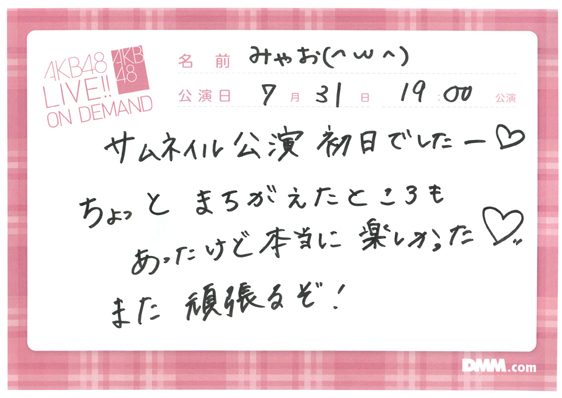 AKB48
LIVE!!
ON DEMAND
AKB
48
名前 みゃお(^ω^)
公演日 7月31日 19:00 公演
サムネイル公演 初日でしたー♡
ちょっと まちがえたところも
あったけど本当に 楽しかった♡
また 頑張るぞ！
DMM.com